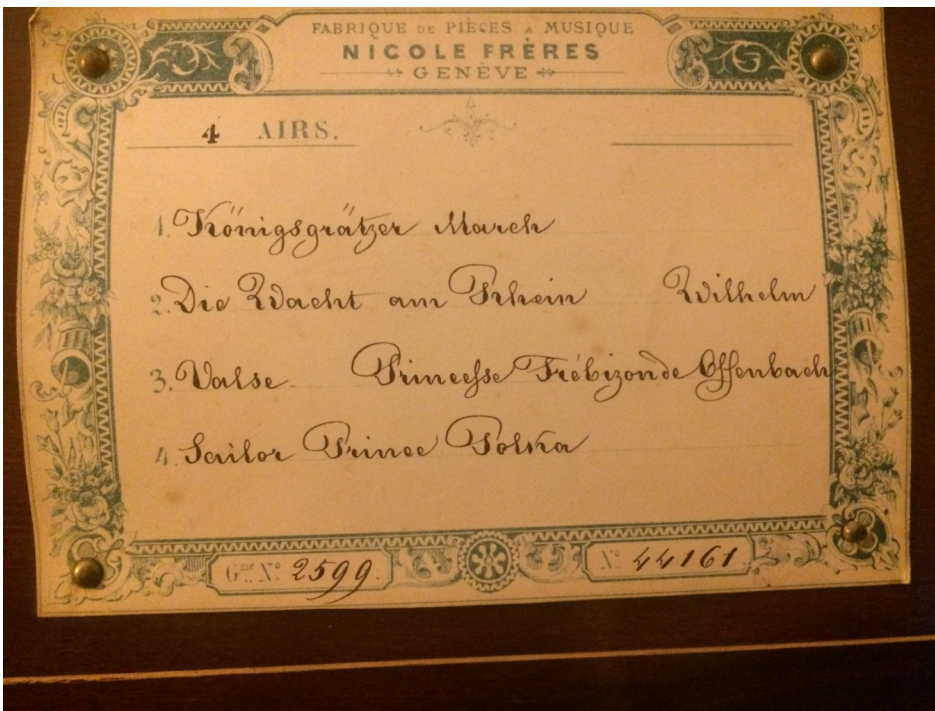 FABRIQUE DE PIÈCES A MUSIQUE
NICOLE FRÈRES
GENÈVE
4 AIRS.
1. Königsgrätzer March
2. Die Wacht am Rhein Wilhelm
3. Valse Princesse Trébizonde Offenbach
4. Sailor Prince Polka
Gme No. 2599
No. 44161